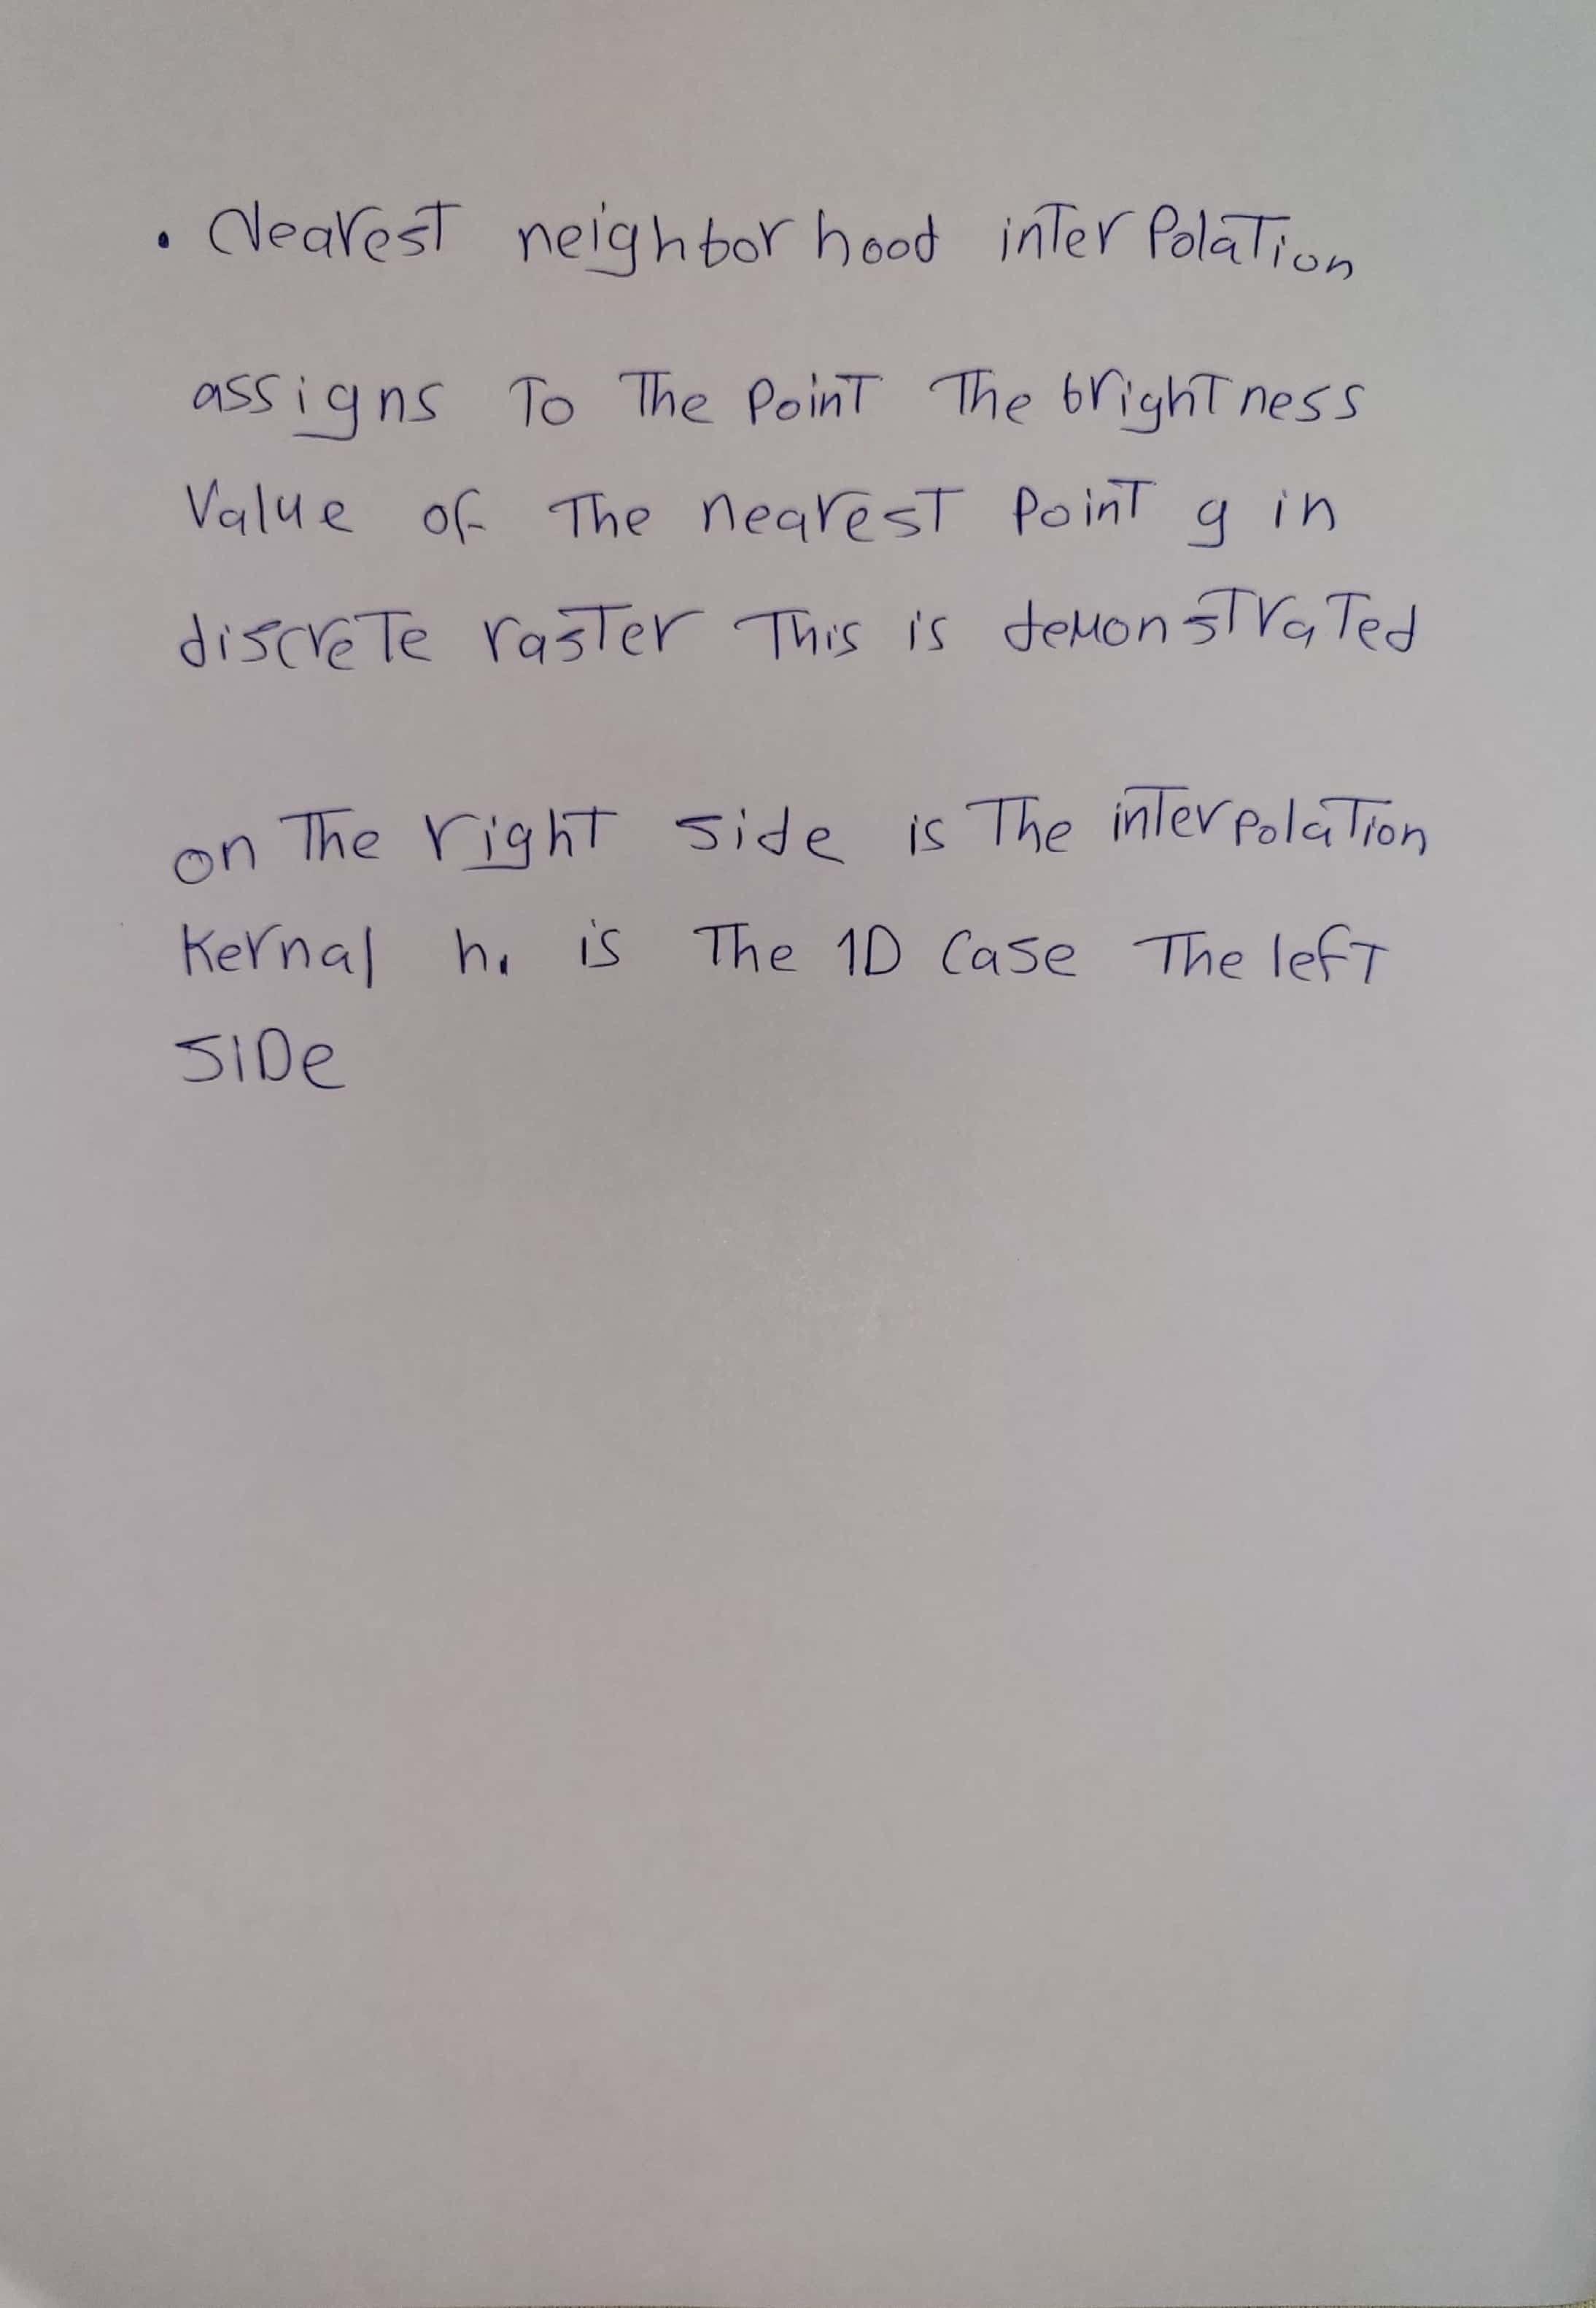 . Nearest neighborhood interpolation
assigns To The Point The brightness
Value of The nearest Point g in
discrete raster This is demonstrated
on The right side is The interpolation
Kernal h. is The 1D Case The left
SIDe